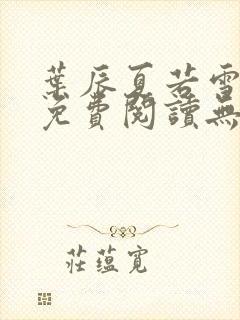 葉辰夏若雪
免費閱讀無
莊蘊寬